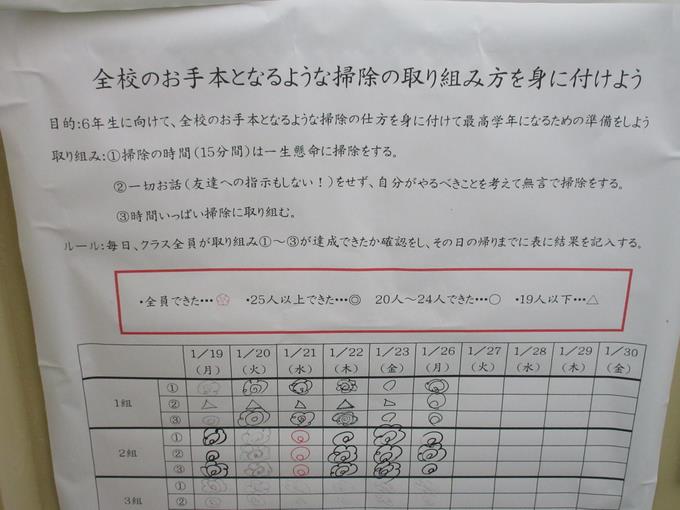 全校のお手本となるような掃除の取り組み方を身に付けよう
目的:6年生に向けて、全校のお手本となるような掃除の仕方を身に付けて最高学年になるための準備をしよう
取り組み:①掃除の時間(15分間)は一生懸命に掃除をする。
②一切お話(友達への指示もしない!)をせず、自分がやるべきことを考えて無言で掃除をする。
③時間いっぱい掃除に取り組む。
ルール:毎日、クラス全員が取り組み①~③が達成できたか確認をし、その日の帰りまでに表に結果を記入する。
・全員できた… ・25人以上できた…◎ 20人~24人できた…○ ・19人以下…△
1/19 1/20 1/21 1/22 1/23 1/26 1/27 1/28 1/29 1/30
(月) (火) (水) (木) (金) (月) (火) (水) (木) (金)
1組
①
② △ △ △ △ △ ○
③
2組
①
②
③
3組
①
②